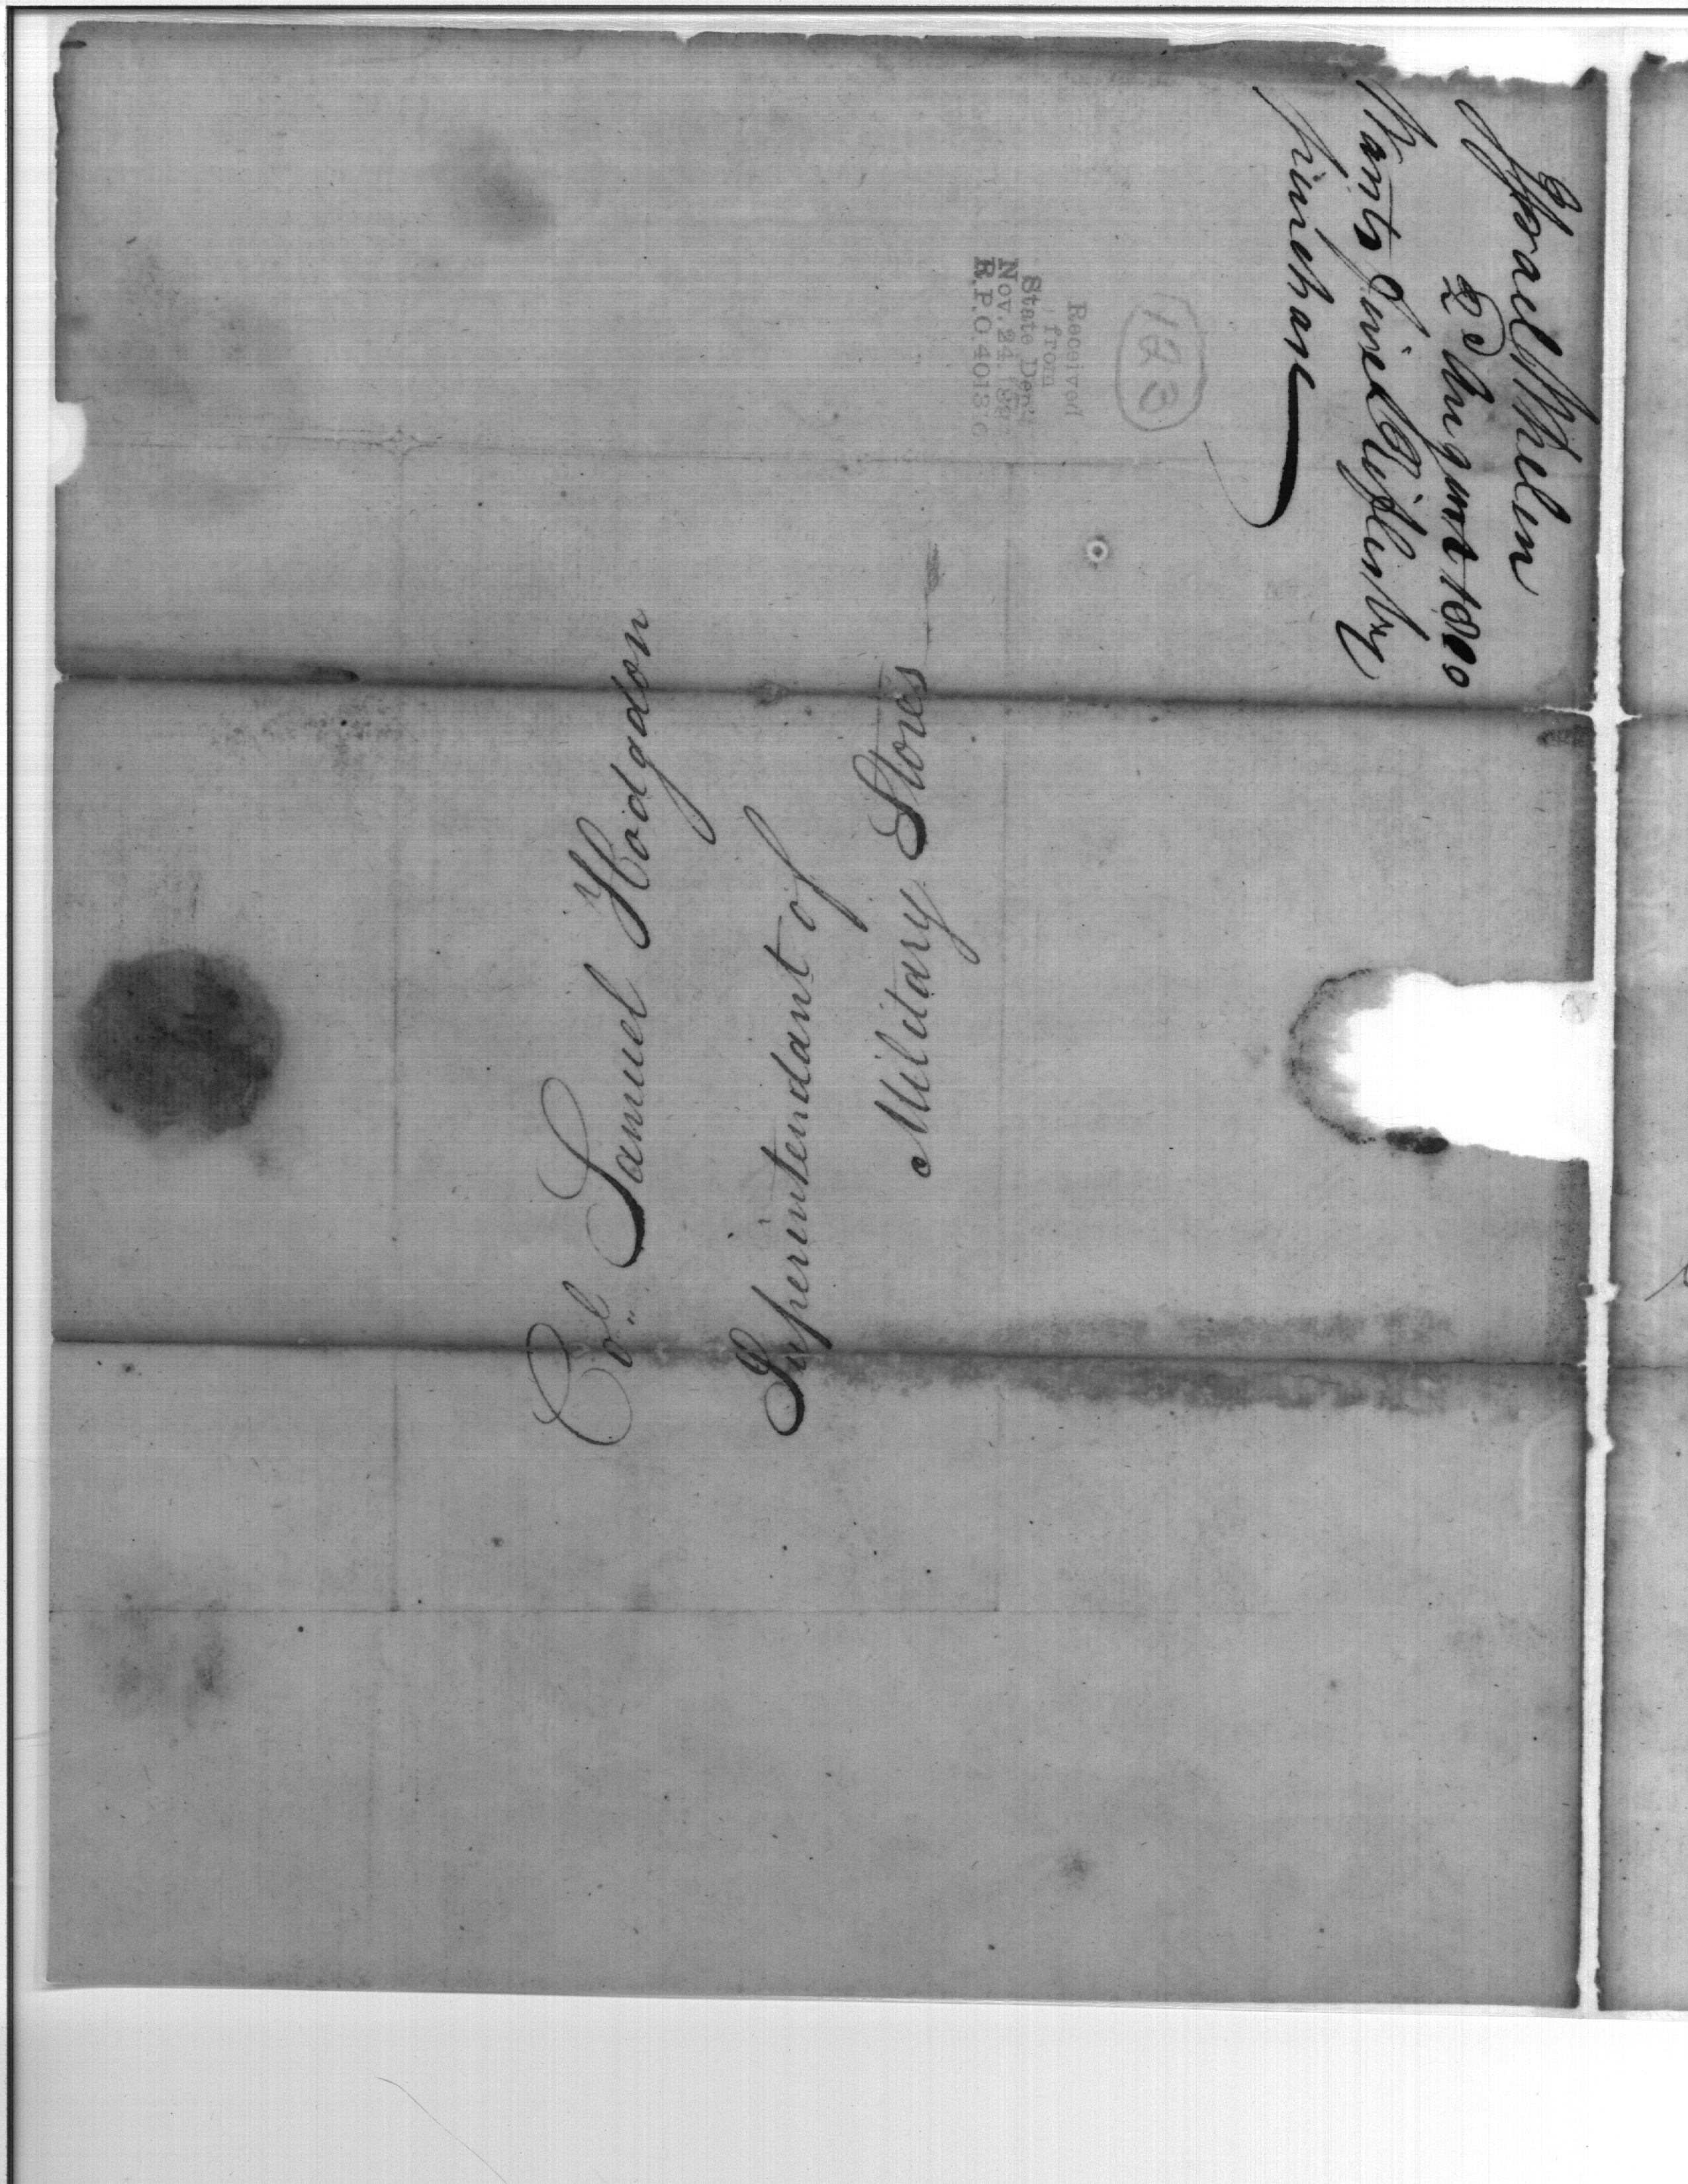 Israel Whelen
2d August 1800
Wants Lined
purchase
123
Received
from
State Dept.
Nov. 24.
R.P.O. 40136
Col. Samuel Hodgdon
Superintendant of
Military Stores